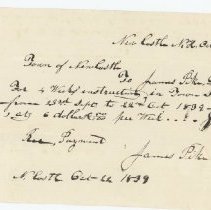 New Castle N.H. Oc
Town of New Castle
To James Pike
For 4 Weeks instruction in Town
from 23rd Sept to 22nd Oct 1839
at 6 dollars per Week
Rec Payment
James Pike
N. Castle Oct 22 1839